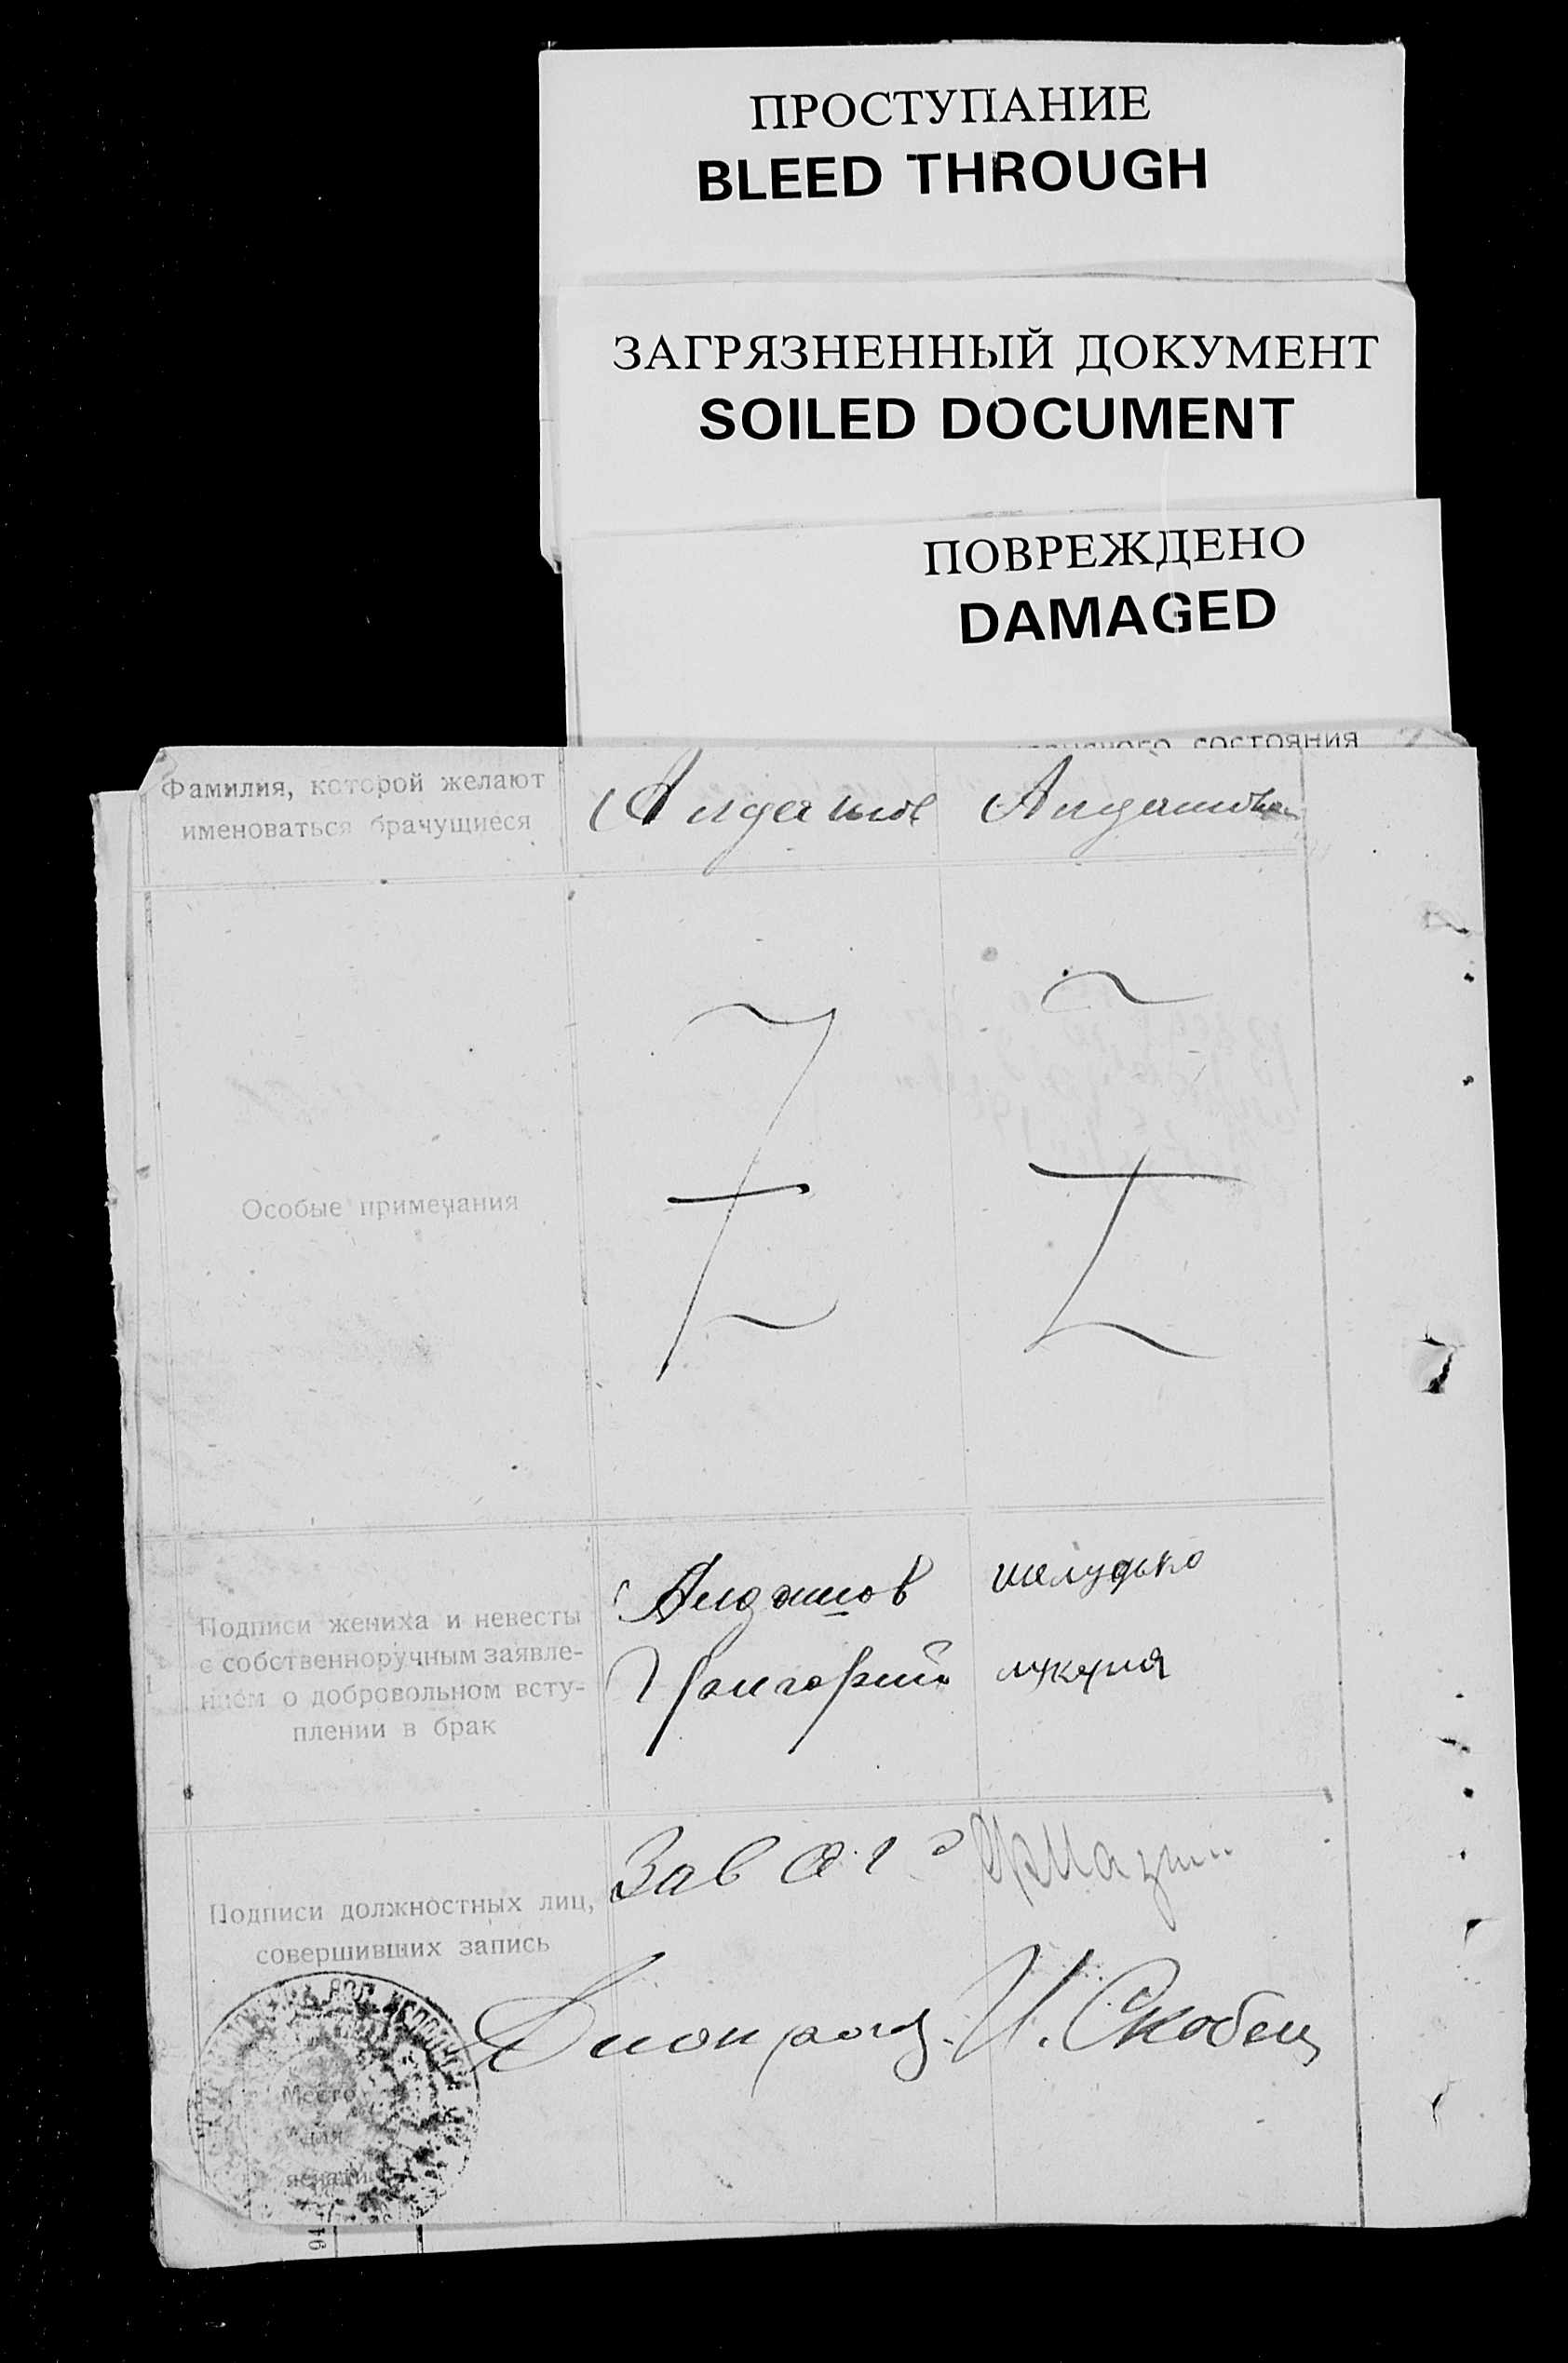 ПРОСТУПАНИЕ
BLEED THROUGH
ЗАГРЯЗНЕННЫЙ ДОКУМЕНТ
SOILED DOCUMENT
ПОВРЕЖДЕНО
DAMAGED
состояния
Фамилия, которой желают
именоваться брачущиеся
Алдашов Алдашова
Особые примечания
Подписи жениха и невесты
с собственноручным заявле-
нием о добровольном всту-
плении в брак
Алдашов
Григорий
шелудько
лукерия
Подписи должностных лиц,
совершивших запись
Зав
И. Скобец
Место
для
печати